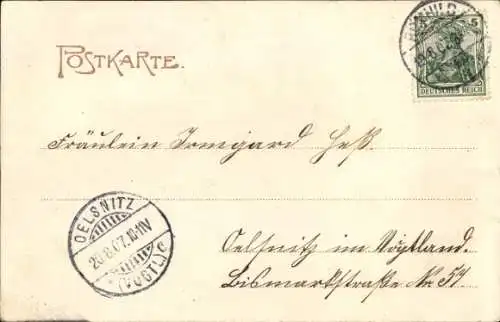 POSTKARTE.
5 5
DEUTSCHES REICH
Fräulein Irmgard Heß.
OELSNITZ
20.8.07. 10-11V
(VOGTL) C
Oelsnitz im Vogtland.
Bismarkstraße Nr. 57